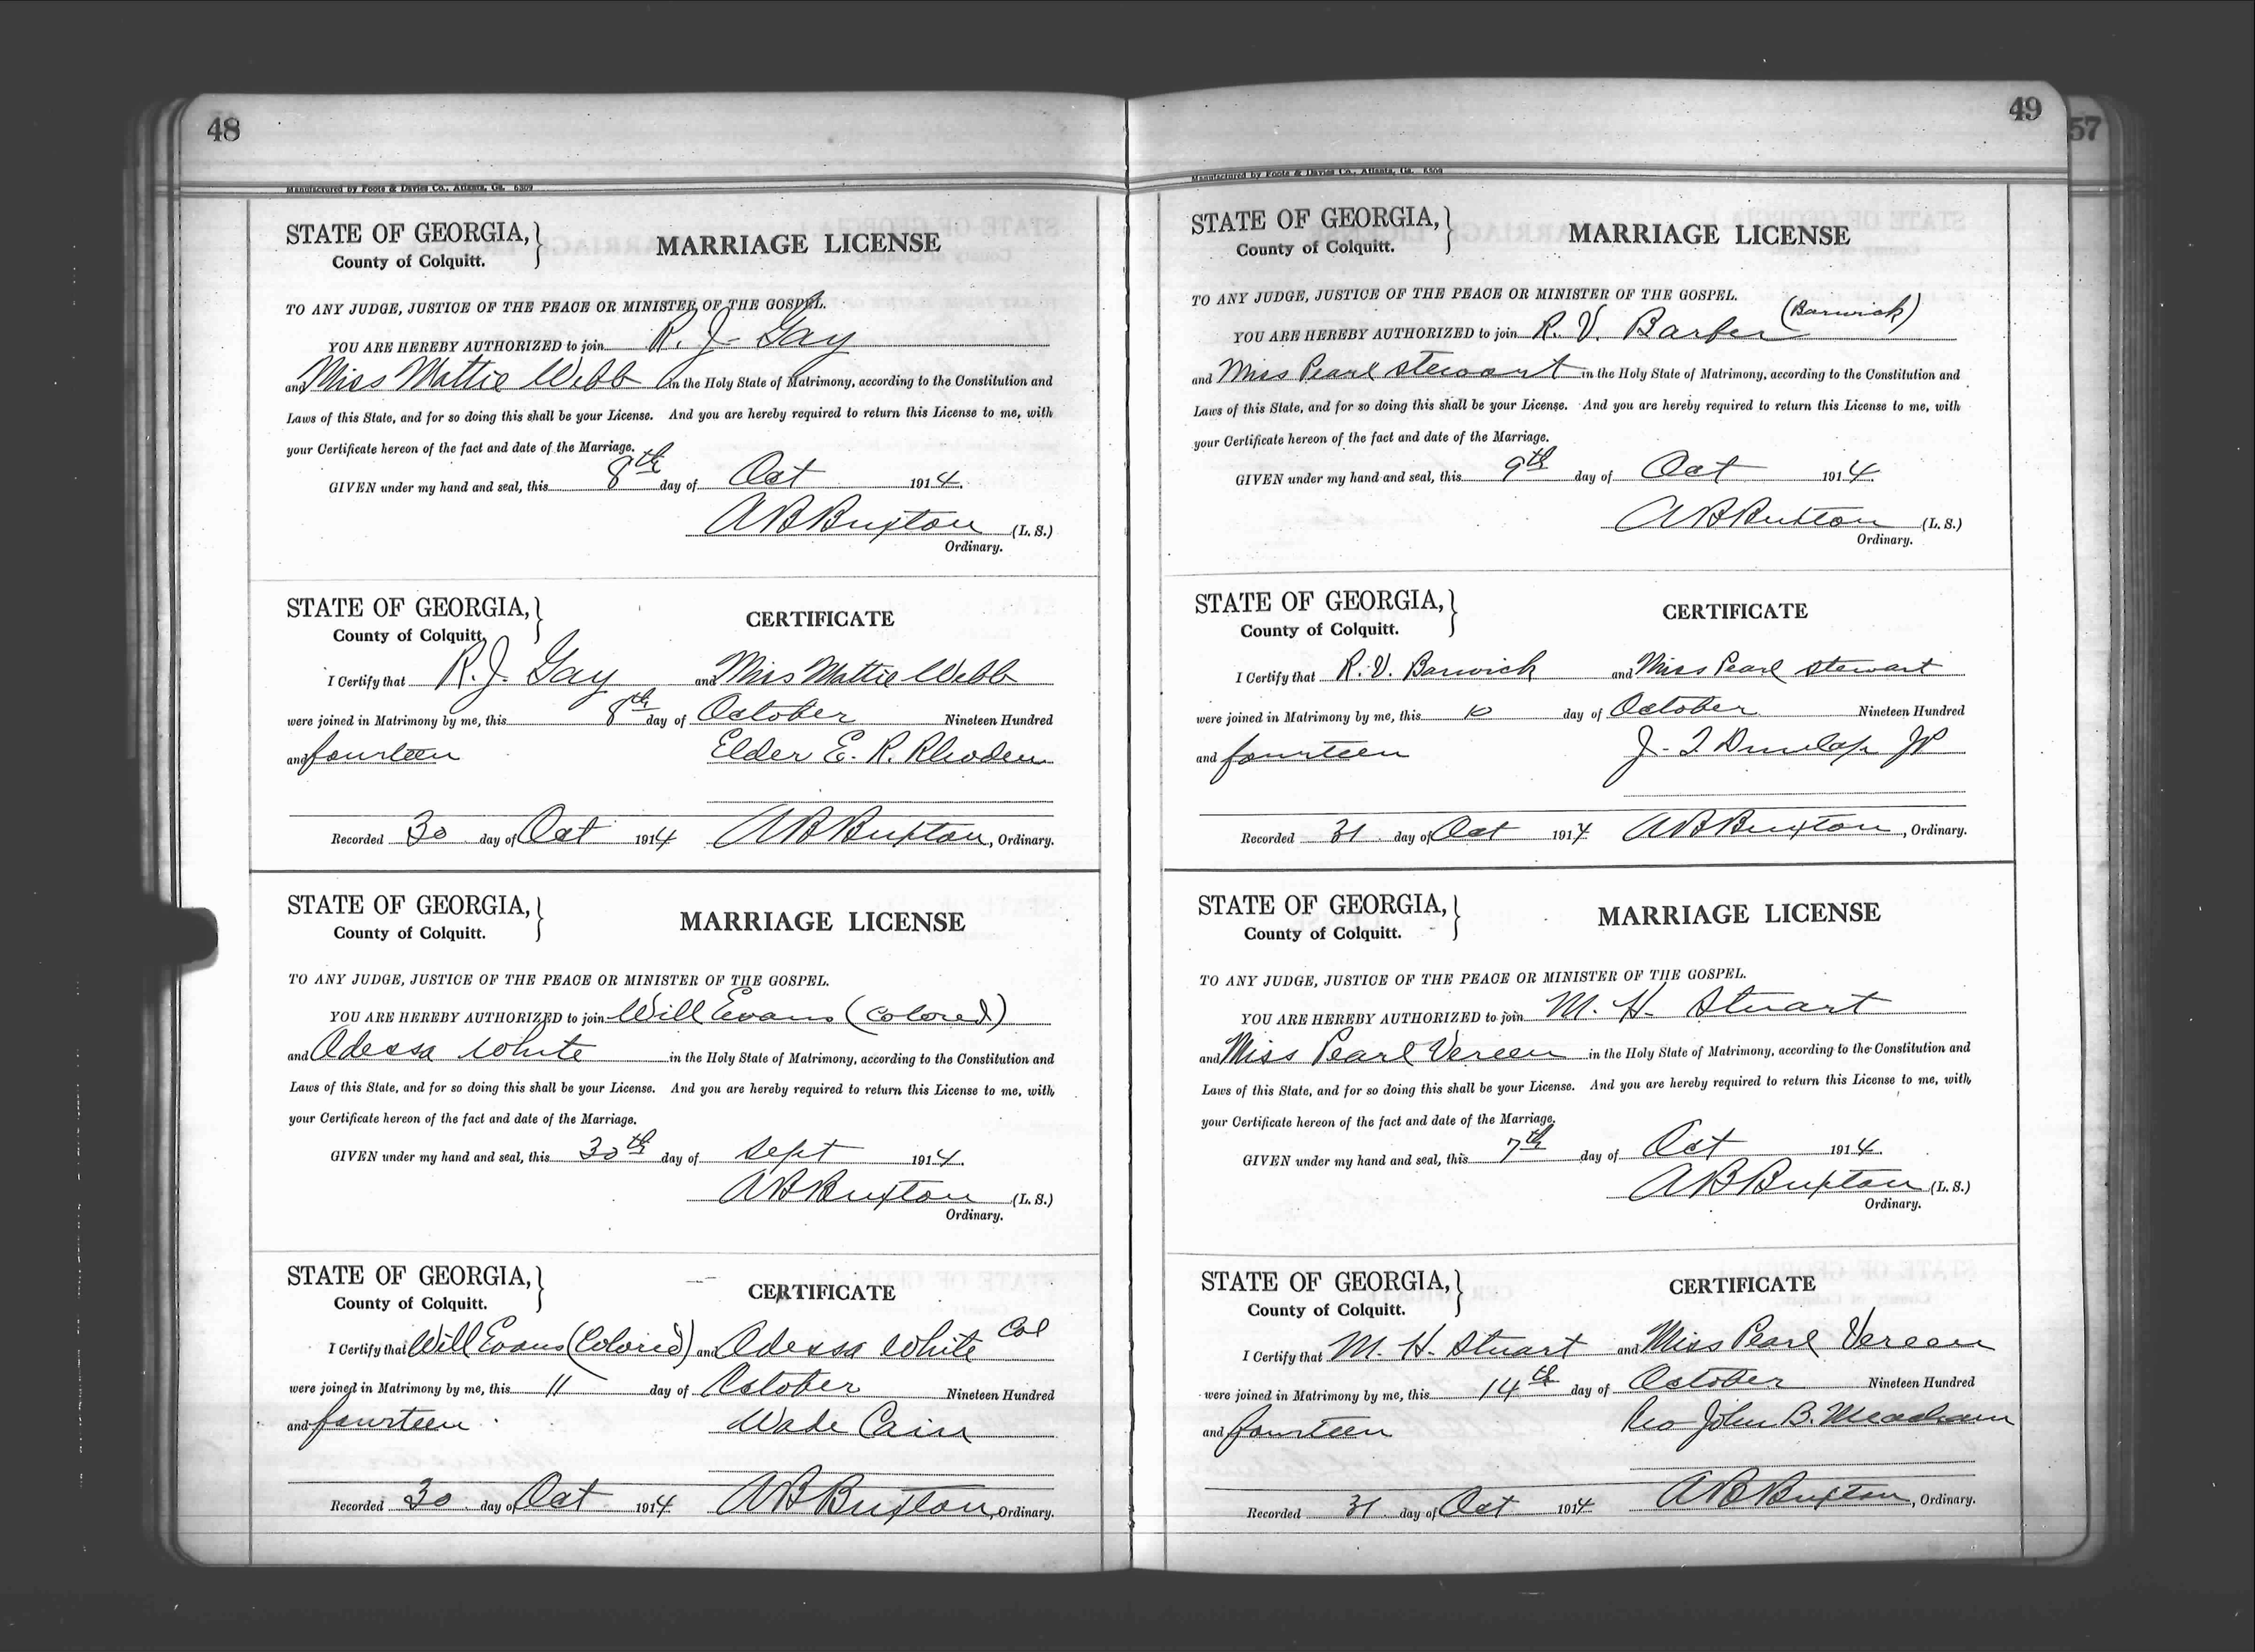 48
Manufactured by Foote & Davies Co., Atlanta, Ga. 6309
STATE OF GEORGIA,
County of Colquitt.
MARRIAGE LICENSE
TO ANY JUDGE, JUSTICE OF THE PEACE OR MINISTER OF THE GOSPEL.
YOU ARE HEREBY AUTHORIZED to join R. J. Gay
and Miss Mattie Webb in the Holy State of Matrimony, according to the Constitution and
Laws of this State, and for so doing this shall be your License. And you are hereby required to return this License to me, with
your Certificate hereon of the fact and date of the Marriage.
GIVEN under my hand and seal, this 8th day of Oct 1914.
A B Buxton (L. S.)
Ordinary.
STATE OF GEORGIA,
County of Colquitt.
CERTIFICATE
I Certify that R. J. Gay and Miss Mattie Webb
were joined in Matrimony by me, this 8th day of October Nineteen Hundred
and fourteen Elder E. R. Rhoden
Recorded 30 day of Oct 1914 A B Buxton, Ordinary.
STATE OF GEORGIA,
County of Colquitt.
MARRIAGE LICENSE
TO ANY JUDGE, JUSTICE OF THE PEACE OR MINISTER OF THE GOSPEL.
YOU ARE HEREBY AUTHORIZED to join Will Evans (Colored)
and Odessa White in the Holy State of Matrimony, according to the Constitution and
Laws of this State, and for so doing this shall be your License. And you are hereby required to return this License to me, with
your Certificate hereon of the fact and date of the Marriage.
GIVEN under my hand and seal, this 30th day of Sept 1914.
A B Buxton (L. S.)
Ordinary.
STATE OF GEORGIA,
County of Colquitt.
CERTIFICATE
I Certify that Will Evans (Colored) and Odessa White Col
were joined in Matrimony by me, this 11 day of October Nineteen Hundred
and fourteen Wade Cain
Recorded 30 day of Oct 1914 A B Buxton, Ordinary.
49
57
Manufactured by Foote & Davies Co., Atlanta, Ga. 6309
STATE OF GEORGIA,
County of Colquitt.
MARRIAGE LICENSE
TO ANY JUDGE, JUSTICE OF THE PEACE OR MINISTER OF THE GOSPEL.
YOU ARE HEREBY AUTHORIZED to join R. V. Barber (Barwick)
and Miss Pearl Stewart in the Holy State of Matrimony, according to the Constitution and
Laws of this State, and for so doing this shall be your License. And you are hereby required to return this License to me, with
your Certificate hereon of the fact and date of the Marriage.
GIVEN under my hand and seal, this 9th day of Oct 1914.
A B Buxton (L. S.)
Ordinary.
STATE OF GEORGIA,
County of Colquitt.
CERTIFICATE
I Certify that R. V. Barwick and Miss Pearl Stewart
were joined in Matrimony by me, this 10 day of October Nineteen Hundred
and fourteen J. T Dunlap JP
Recorded 31 day of Oct 1914 A B Buxton, Ordinary.
STATE OF GEORGIA,
County of Colquitt.
MARRIAGE LICENSE
TO ANY JUDGE, JUSTICE OF THE PEACE OR MINISTER OF THE GOSPEL.
YOU ARE HEREBY AUTHORIZED to join M. H. Stuart
and Miss Pearl Vereen in the Holy State of Matrimony, according to the Constitution and
Laws of this State, and for so doing this shall be your License. And you are hereby required to return this License to me, with
your Certificate hereon of the fact and date of the Marriage.
GIVEN under my hand and seal, this 7th day of Oct 1914.
A B Buxton (L. S.)
Ordinary.
STATE OF GEORGIA,
County of Colquitt.
CERTIFICATE
I Certify that M. H. Stuart and Miss Pearl Vereen
were joined in Matrimony by me, this 14th day of October Nineteen Hundred
and fourteen Rev John B. Meacham
Recorded 31 day of Oct 1914 A B Buxton, Ordinary.